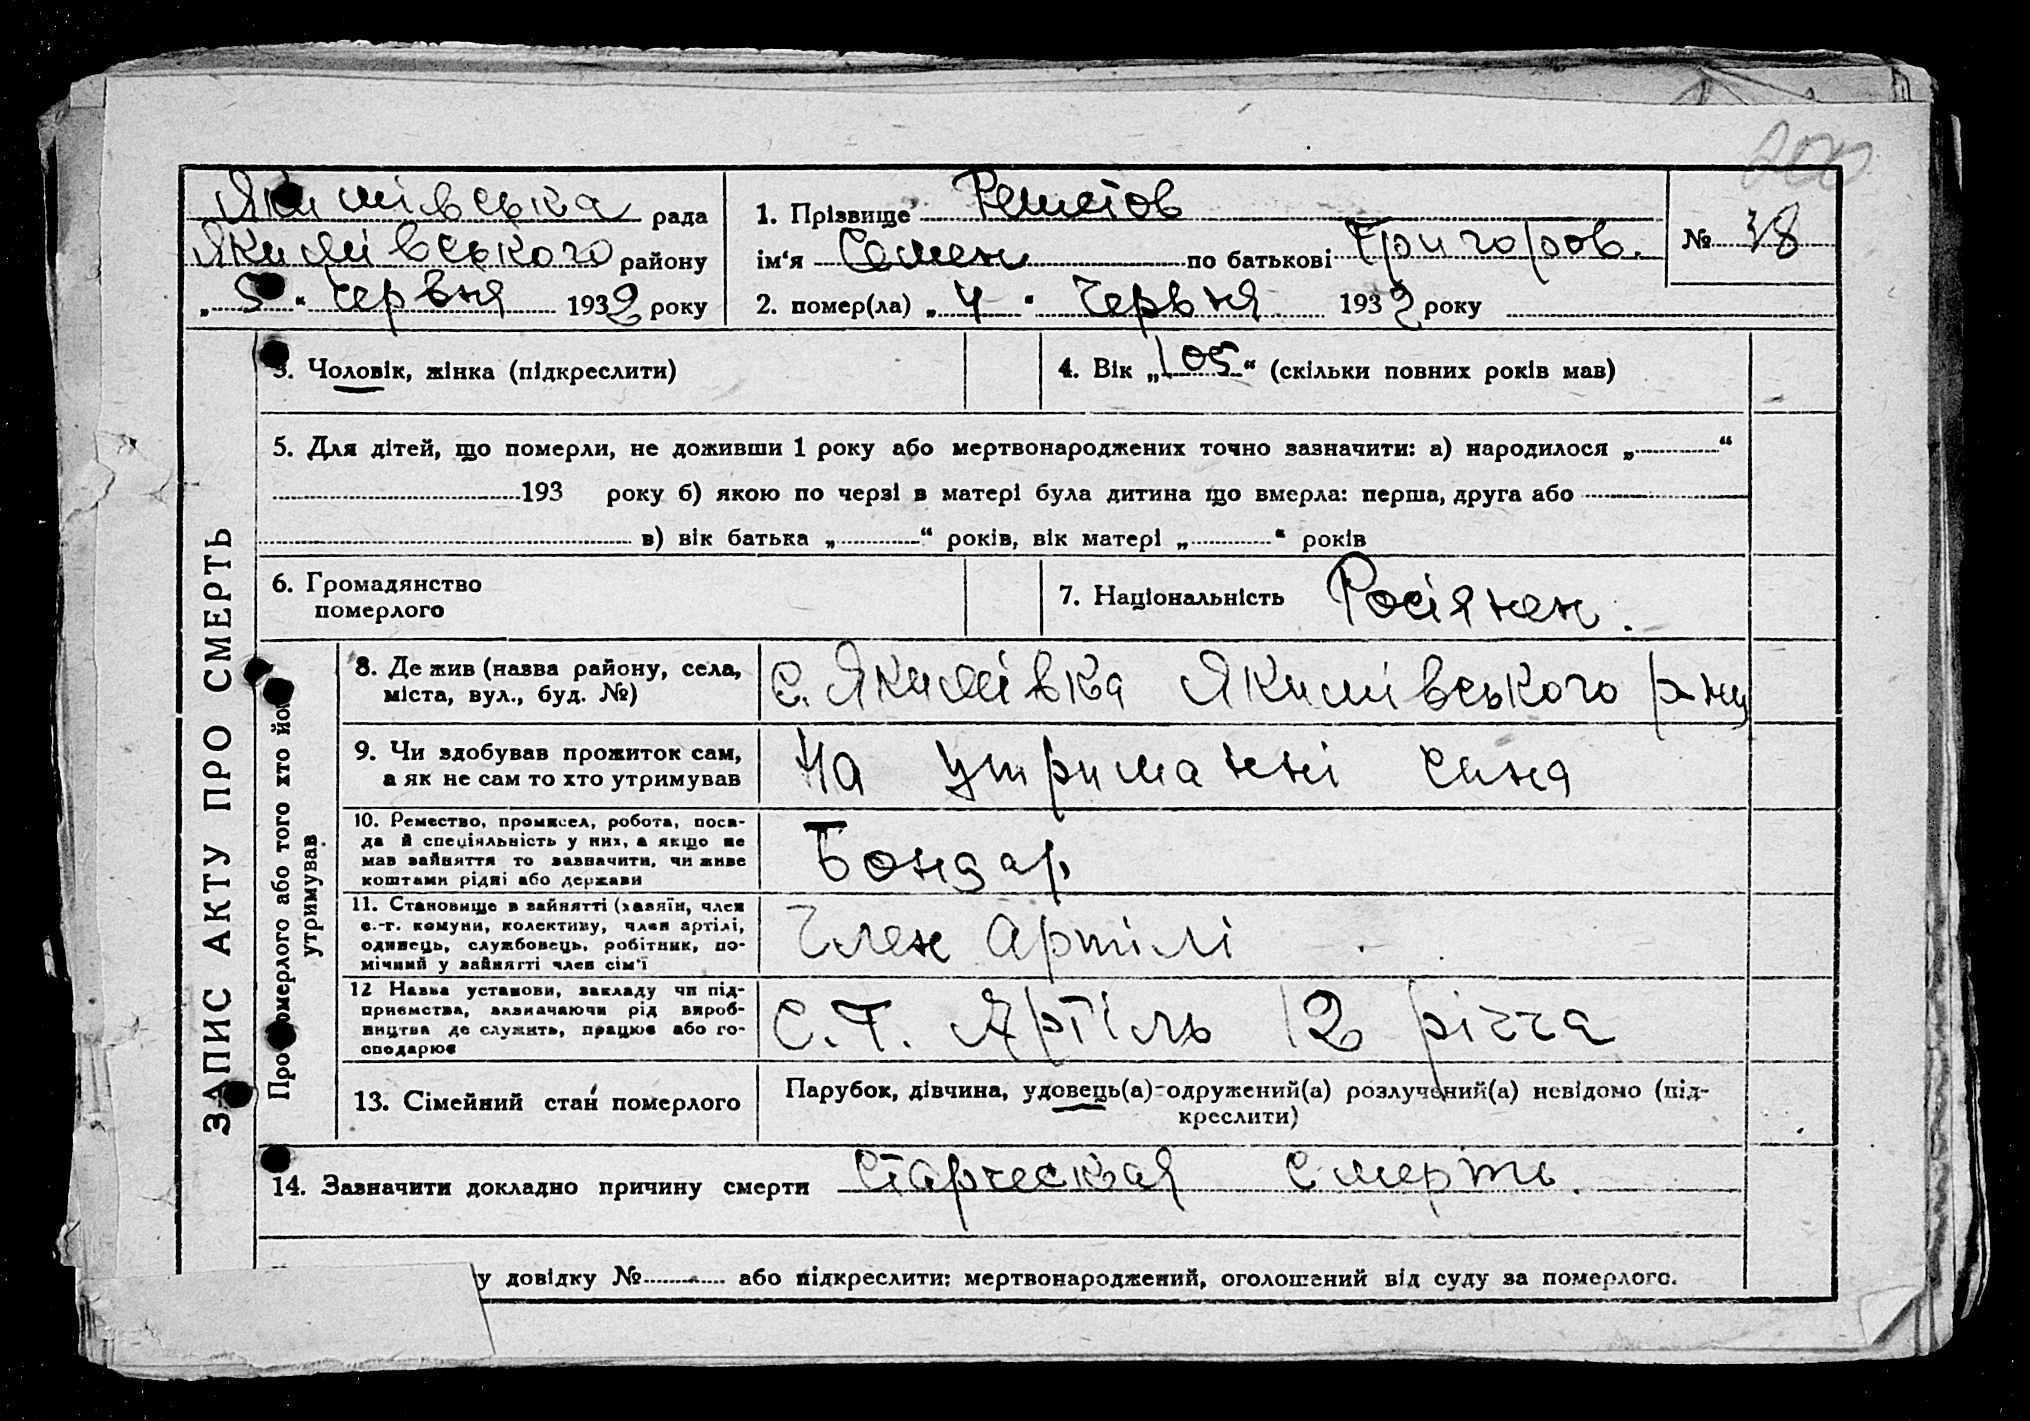 200
Якимівська рада
Якимівського району
„5“ червня 1932 року
1. Прізвище Решетов
ім'я Семен по батькові Григоров.
2. помер(ла) „4“ Червня 1932 року
№ 38
ЗАПИС АКТУ ПРО СМЕРТЬ
3. Чоловік, жінка (підкреслити)
4. Вік „105“ (скільки повних років мав)
5. Для дітей, що померли, не доживши 1 року або мертвонароджених точно зазначити: а) народилося „ “
193 року б) якою по черзі в матері була дитина що вмерла: перша, друга або
в) вік батька „ “ років, вік матері „ “ років
6. Громадянство
померлого
7. Національність Росіянен.
Про померлого або того хто йо
утримував.
8. Де жив (назва району, села,
міста, вул., буд. №)
С. Якимівка Якимівського р-ну
9. Чи здобував прожиток сам,
а як не сам то хто утримував
На утриманні сина
10. Ремество, промисел, робота, поса-
да й спеціяльність у них, а якщо не
мав зайняття то зазначити, чи живе
коштами рідні або держави
Бондар
11. Становище в зайнятті (хазяїн, член
с.-г. комуни, колективу, член артілі,
одинець, службовець, робітник, по-
мічний у зайнятті член сім'ї
Член Артілі
12 Назва установи, закладу чи під-
приємства, зазначаючи рід вироб-
ництва де служить, працює або го-
сподарює
С.Г. Артіль 12 річча
13. Сімейний стан померлого
Парубок, дівчина, удовець(а) одружений(а) розлучений(а) невідомо (під-
креслити)
14. Зазначити докладно причину смерти Старческая Смерть.
у довідку № або підкреслити: мертвонароджений, оголошений від суду за померлого.